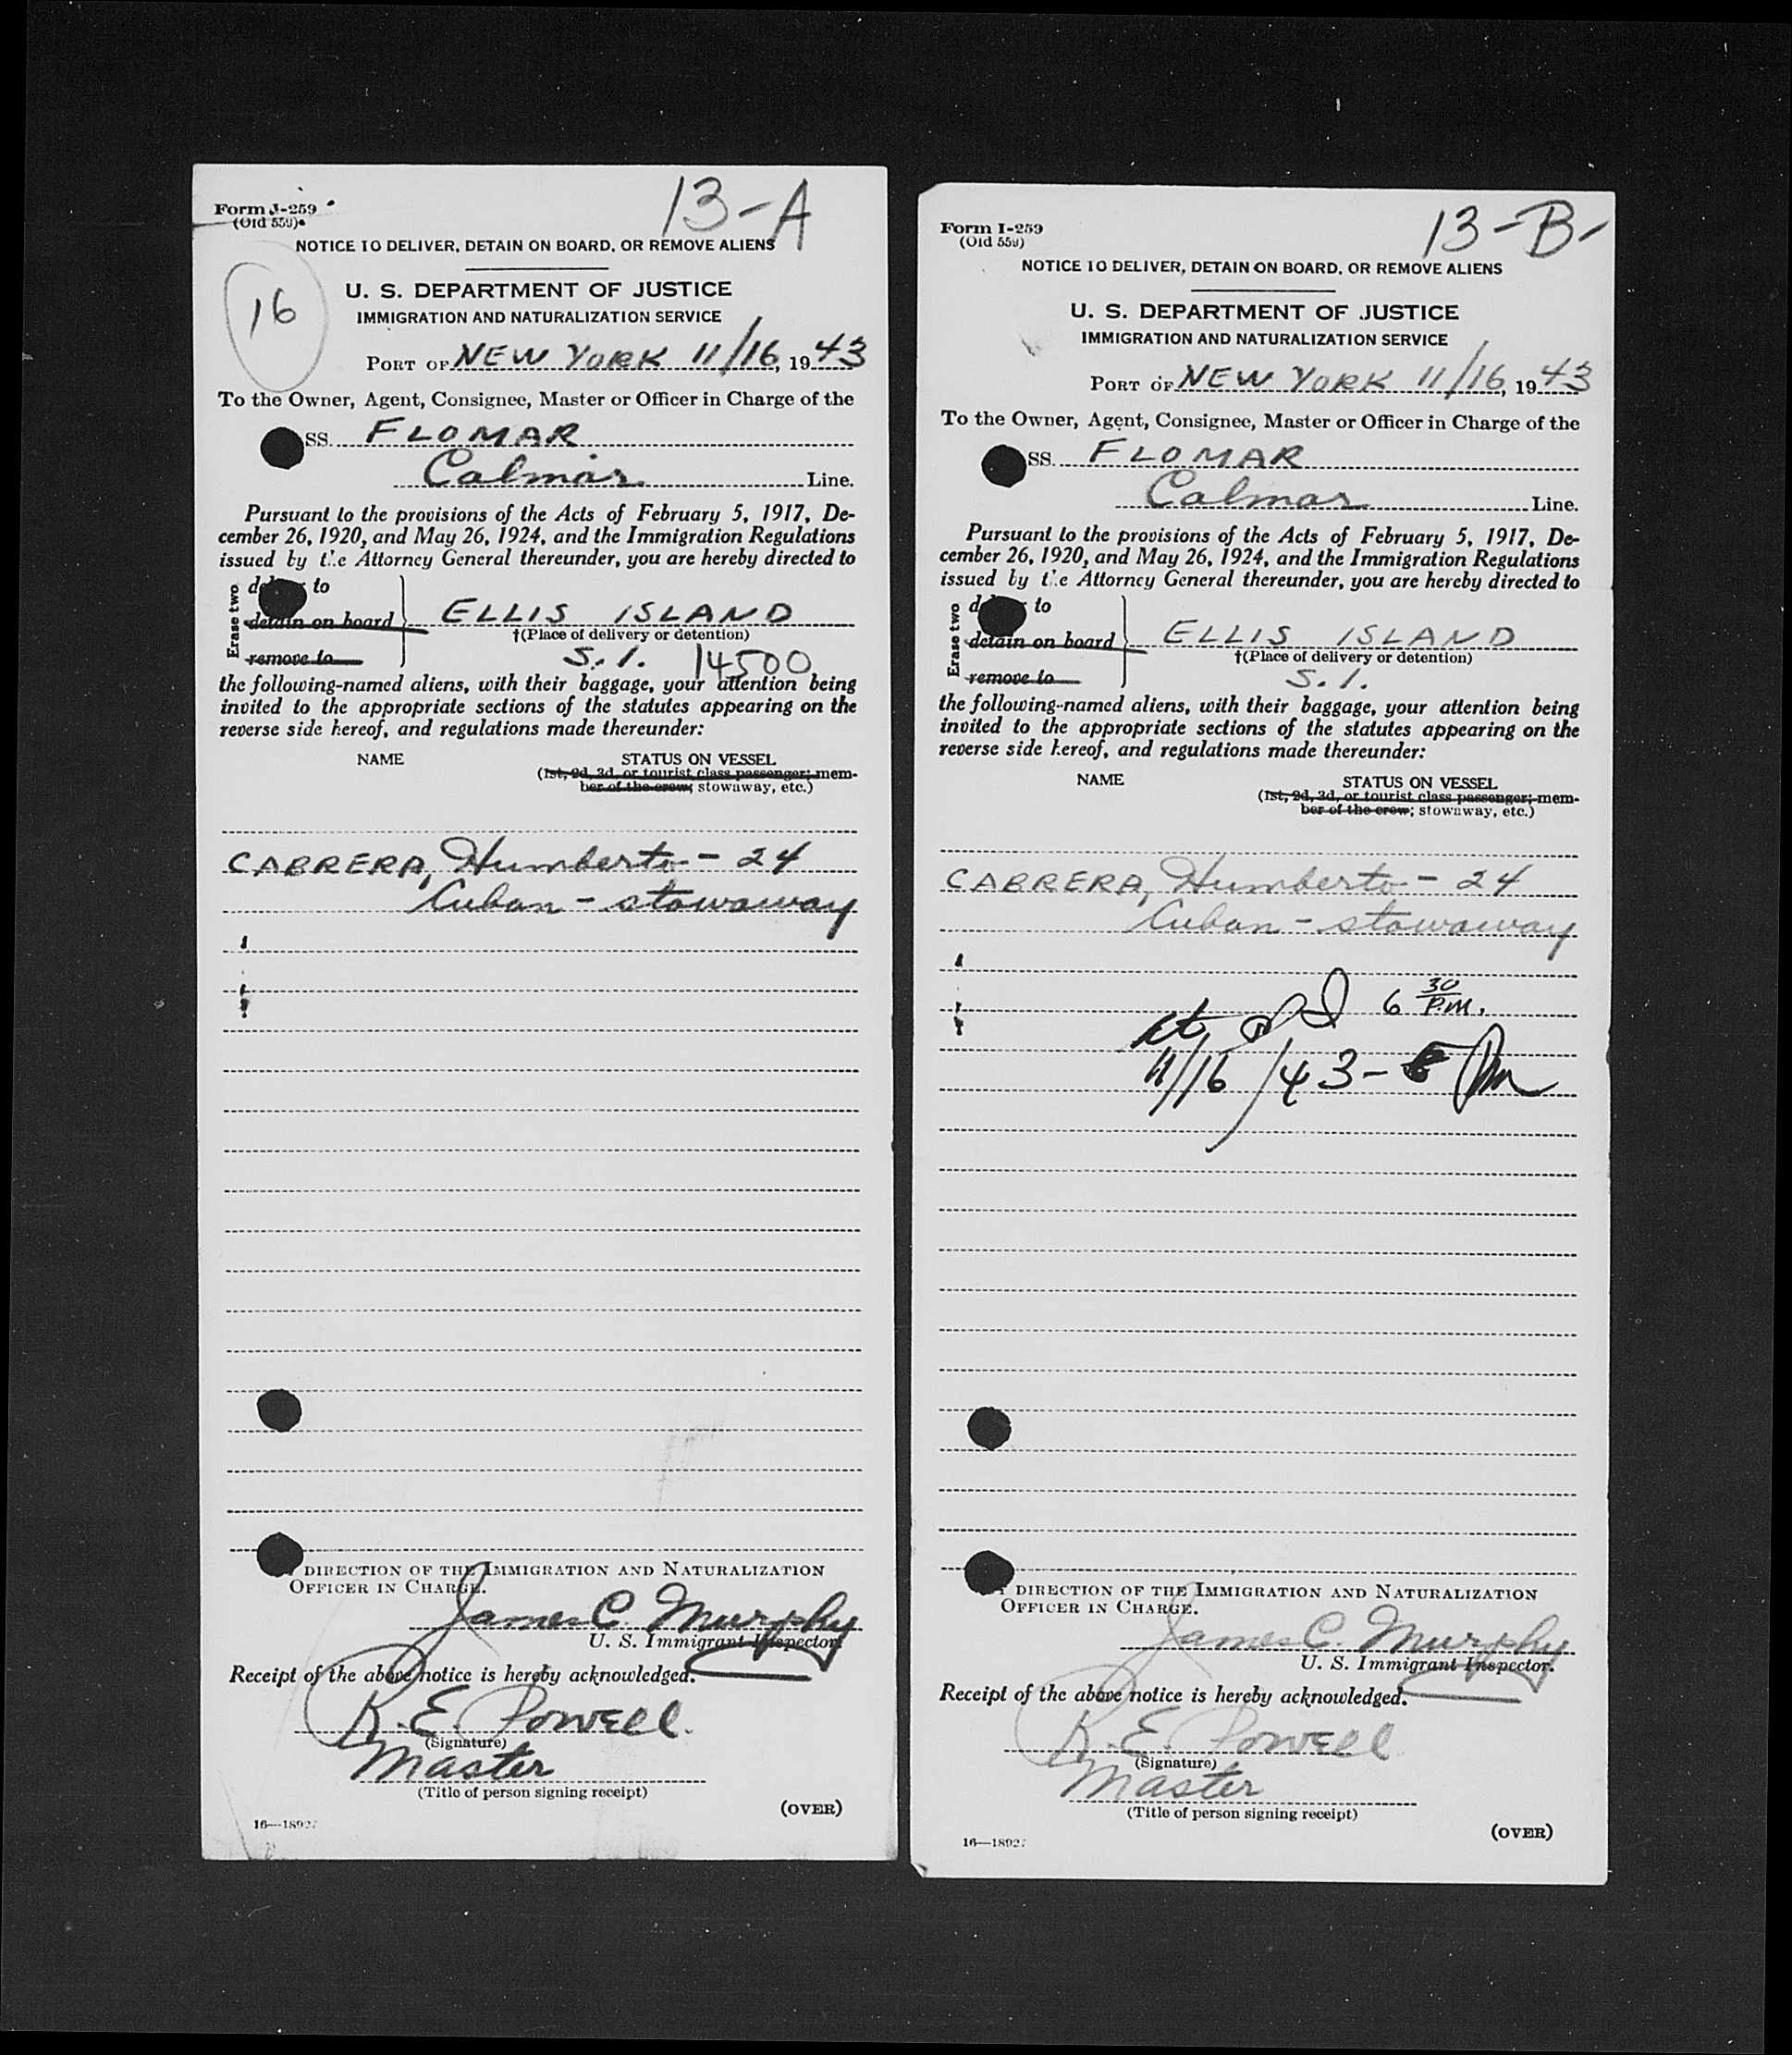 Form I-259
(Old 559)
13-A
NOTICE TO DELIVER, DETAIN ON BOARD, OR REMOVE ALIENS
16
U. S. DEPARTMENT OF JUSTICE
IMMIGRATION AND NATURALIZATION SERVICE
PORT OF NEW YORK 11/16, 1943
To the Owner, Agent, Consignee, Master or Officer in Charge of the
SS. FLOMAR
Calmar Line.
Pursuant to the provisions of the Acts of February 5, 1917, De-
cember 26, 1920, and May 26, 1924, and the Immigration Regulations
issued by the Attorney General thereunder, you are hereby directed to
Erase two
to
detain on board
ELLIS ISLAND
†(Place of delivery or detention)
remove to
S. I. 14500
the following-named aliens, with their baggage, your attention being
invited to the appropriate sections of the statutes appearing on the
reverse side hereof, and regulations made thereunder:
NAME STATUS ON VESSEL
(1st, 2d, 3d, or tourist class passenger; mem-
ber of the crew; stowaway, etc.)
CABRERA, Humberto - 24
Cuban - stowaway
DIRECTION OF THE IMMIGRATION AND NATURALIZATION
OFFICER IN CHARGE.
James C. Murphy
U. S. Immigrant Inspector.
Receipt of the above notice is hereby acknowledged.
R. E. Powell
(Signature)
Master
(Title of person signing receipt)
(OVER)
16—18927
Form I-259
(Old 559)
13-B-
NOTICE TO DELIVER, DETAIN ON BOARD, OR REMOVE ALIENS
U. S. DEPARTMENT OF JUSTICE
IMMIGRATION AND NATURALIZATION SERVICE
PORT OF NEW YORK 11/16, 1943
To the Owner, Agent, Consignee, Master or Officer in Charge of the
SS. FLOMAR
Calmar Line.
Pursuant to the provisions of the Acts of February 5, 1917, De-
cember 26, 1920, and May 26, 1924, and the Immigration Regulations
issued by the Attorney General thereunder, you are hereby directed to
Erase two
to
detain on board
ELLIS ISLAND
†(Place of delivery or detention)
remove to
S. I.
the following-named aliens, with their baggage, your attention being
invited to the appropriate sections of the statutes appearing on the
reverse side hereof, and regulations made thereunder:
NAME STATUS ON VESSEL
(1st, 2d, 3d, or tourist class passenger; mem-
ber of the crew; stowaway, etc.)
CABRERA, Humberto - 24
Cuban - stowaway
6 30 P.M.
11/16/43-
DIRECTION OF THE IMMIGRATION AND NATURALIZATION
OFFICER IN CHARGE.
James C. Murphy
U. S. Immigrant Inspector.
Receipt of the above notice is hereby acknowledged.
R. E. Powell
(Signature)
Master
(Title of person signing receipt)
(OVER)
16—18927